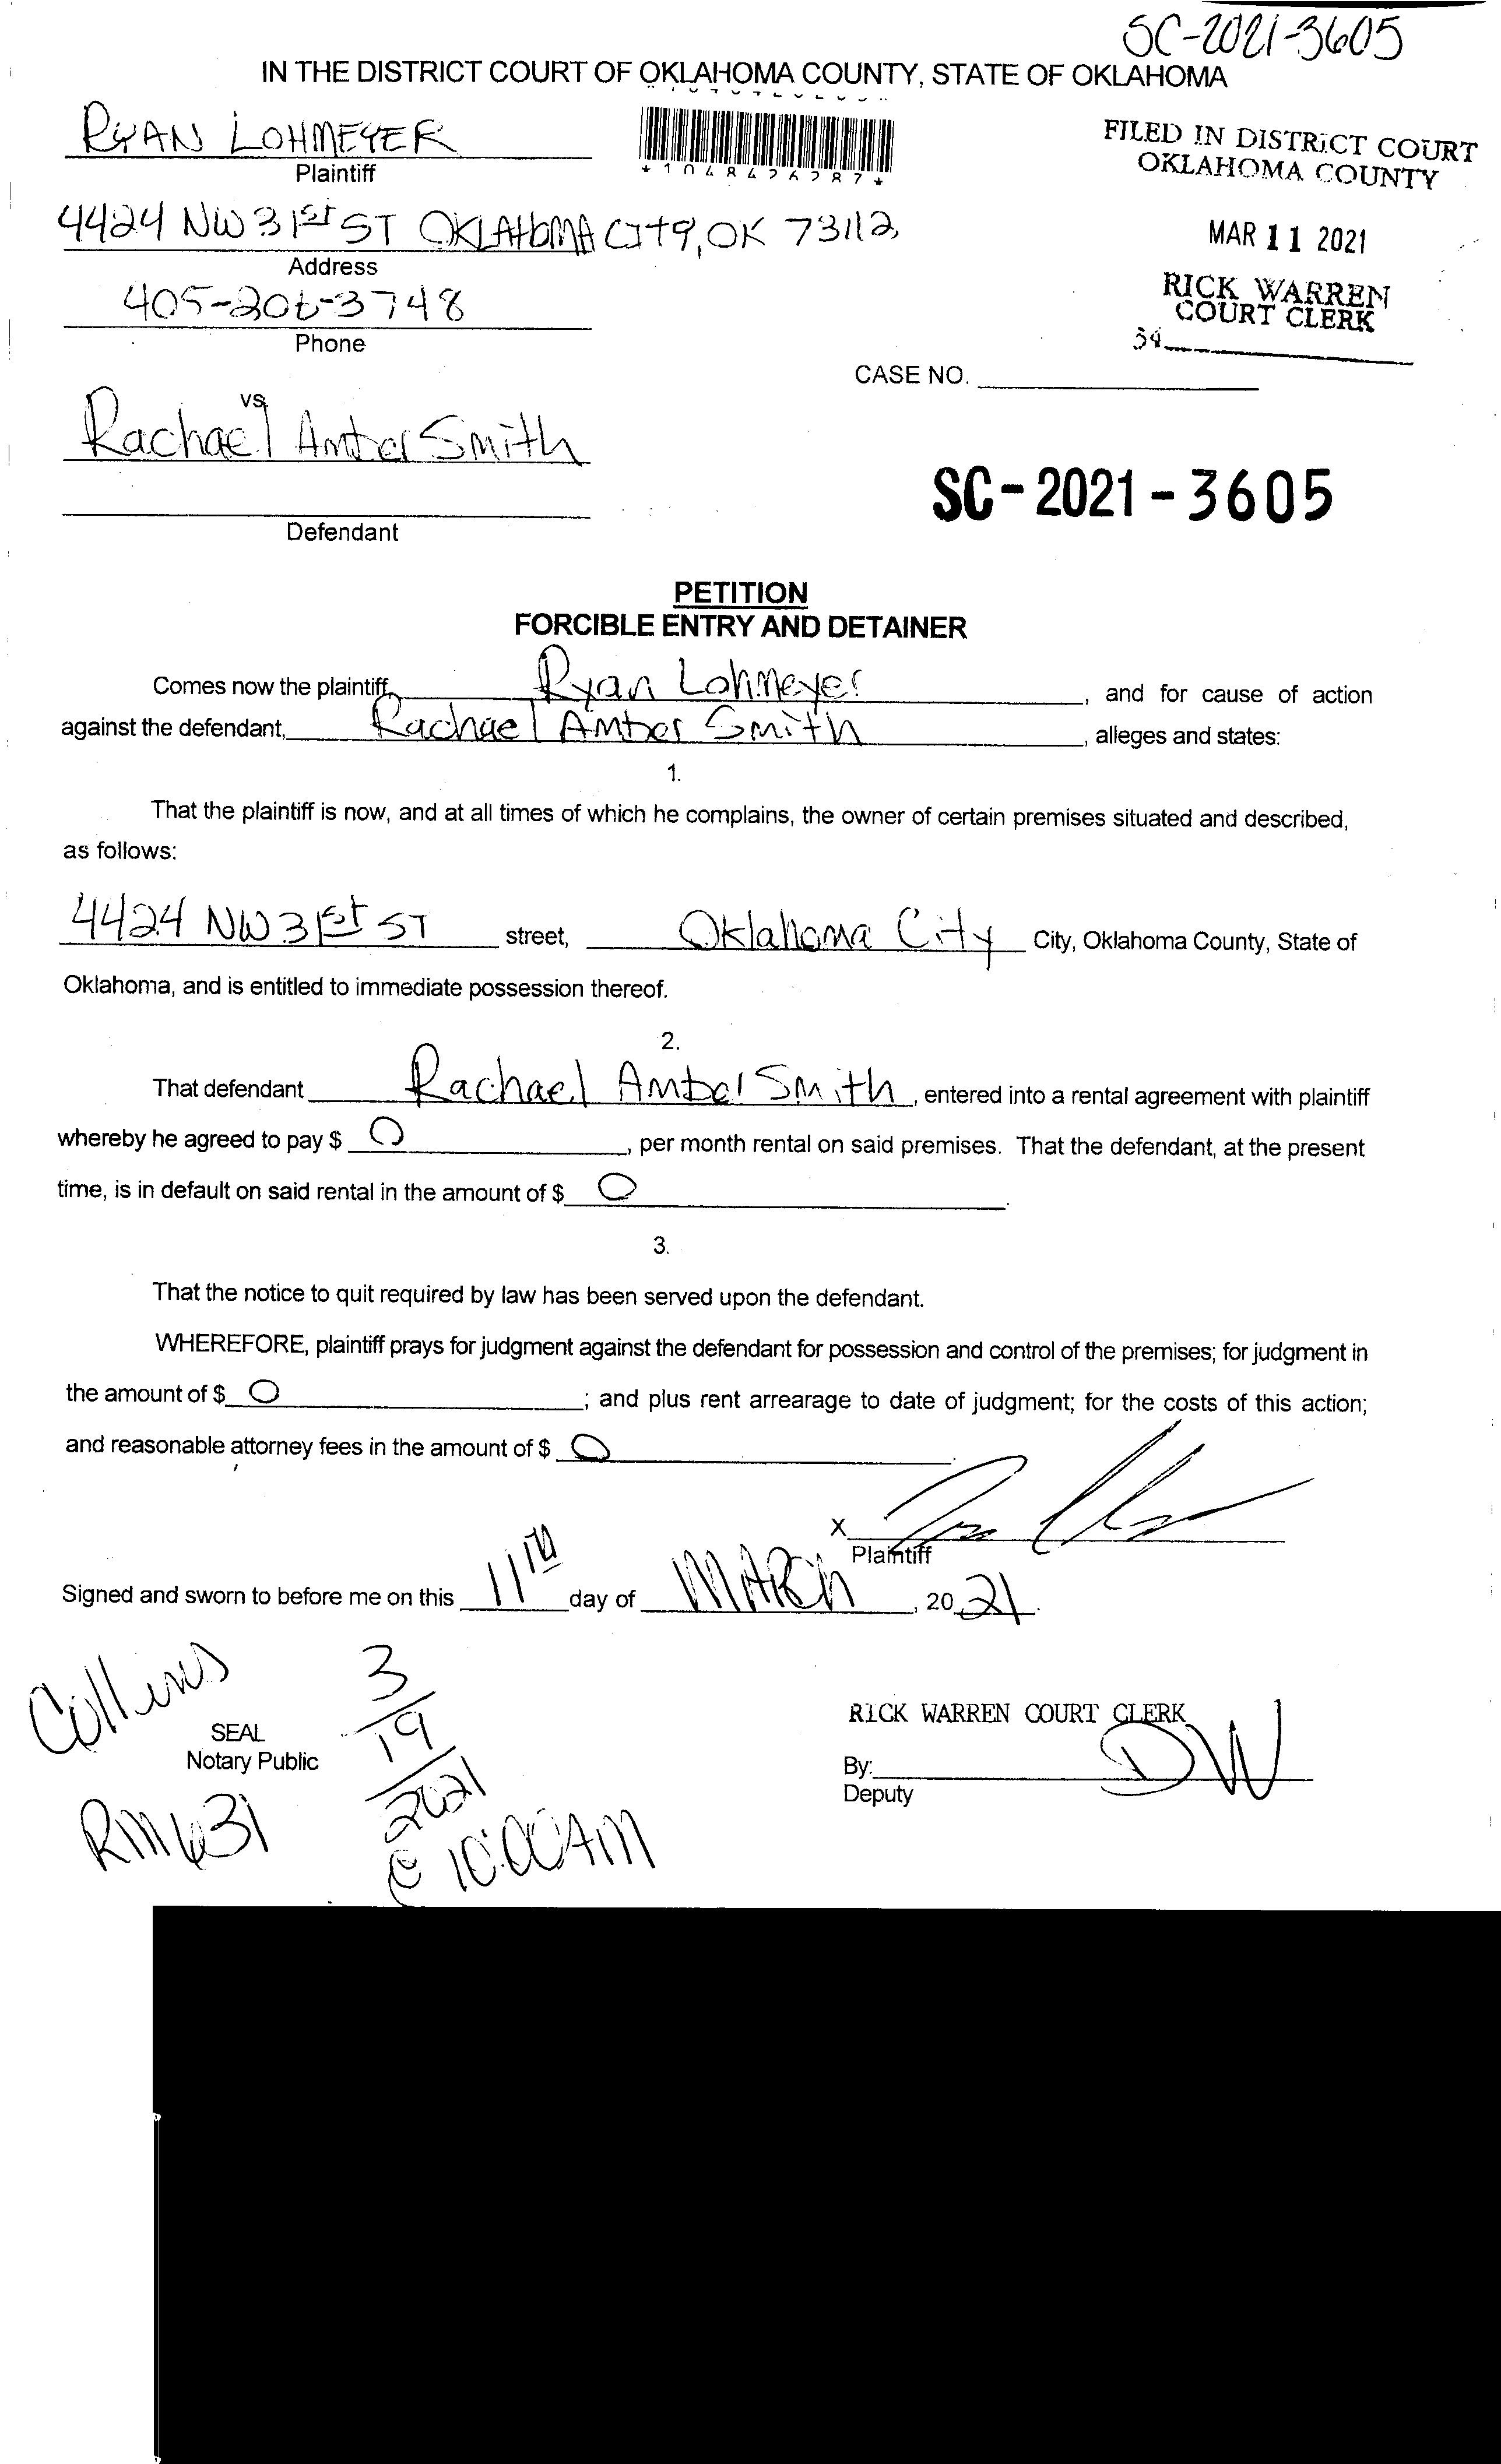 SC-2021-3605
IN THE DISTRICT COURT OF OKLAHOMA COUNTY, STATE OF OKLAHOMA
RYAN LOHMEYER
Plaintiff
*1048426287*
FILED IN DISTRICT COURT
OKLAHOMA COUNTY
4424 NW 31st ST OKLAHOMA CITY, OK 73112
Address
MAR 11 2021
405-206-3748
Phone
RICK WARREN
COURT CLERK
34
CASE NO.
vs.
Rachael Amber Smith
Defendant
SC-2021-3605
PETITION
FORCIBLE ENTRY AND DETAINER
Comes now the plaintiff, Ryan Lohmeyer, and for cause of action
against the defendant, Rachael Amber Smith, alleges and states:
1.
That the plaintiff is now, and at all times of which he complains, the owner of certain premises situated and described,
as follows:
4424 NW 31st ST street, Oklahoma City City, Oklahoma County, State of
Oklahoma, and is entitled to immediate possession thereof.
2.
That defendant Rachael Amber Smith, entered into a rental agreement with plaintiff
whereby he agreed to pay $ 0, per month rental on said premises. That the defendant, at the present
time, is in default on said rental in the amount of $ 0.
3.
That the notice to quit required by law has been served upon the defendant.
WHEREFORE, plaintiff prays for judgment against the defendant for possession and control of the premises; for judgment in
the amount of $ 0; and plus rent arrearage to date of judgment; for the costs of this action;
and reasonable attorney fees in the amount of $ 0.
X
Plaintiff
Signed and sworn to before me on this 11th day of MARch, 2021.
Collins
3/19/2021
SEAL
Notary Public
RICK WARREN COURT CLERK
By: DW
Deputy
RM 631
@ 10:00AM